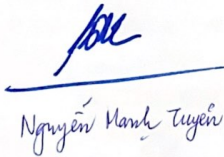 Nguyễn Mạnh Tuyến